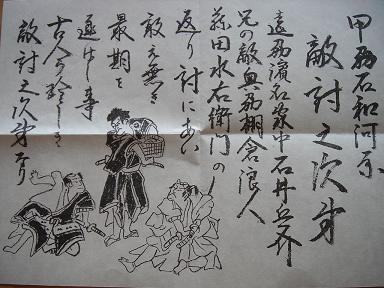 甲州石和河原
敵討之次第
遠州濱名家中石井兵介
兄の敵奥州棚倉浪人
藤田水右衛門の
返り討にあい
敢え無き
最期を
遂げし事
古今の珍しき
敵討之次第なり